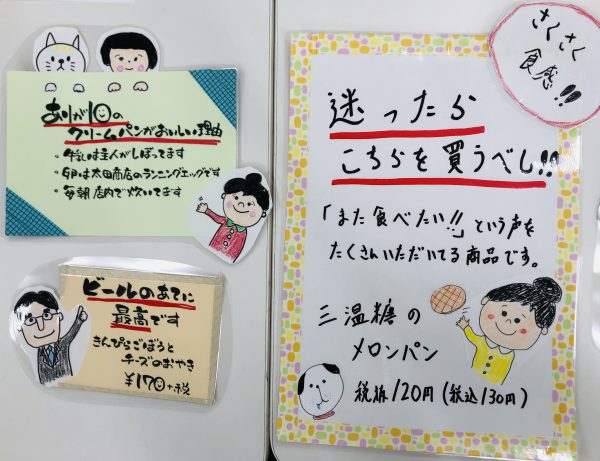 ありが10の
クリームパンがおいしい理由
・牛乳は主人がしぼってます
・卵は太田商店のランニングエッグです
・毎朝店内で炊いてます
ビールのあてに
最高です
きんぴらごぼうと
チーズのおやき
¥170+税
さくさく
食感!!
迷ったら
こちらを買うべし!!
「また食べたい!!」という声を
たくさんいただいてる商品です。
三温糖の
メロンパン
税抜120円(税込130円)